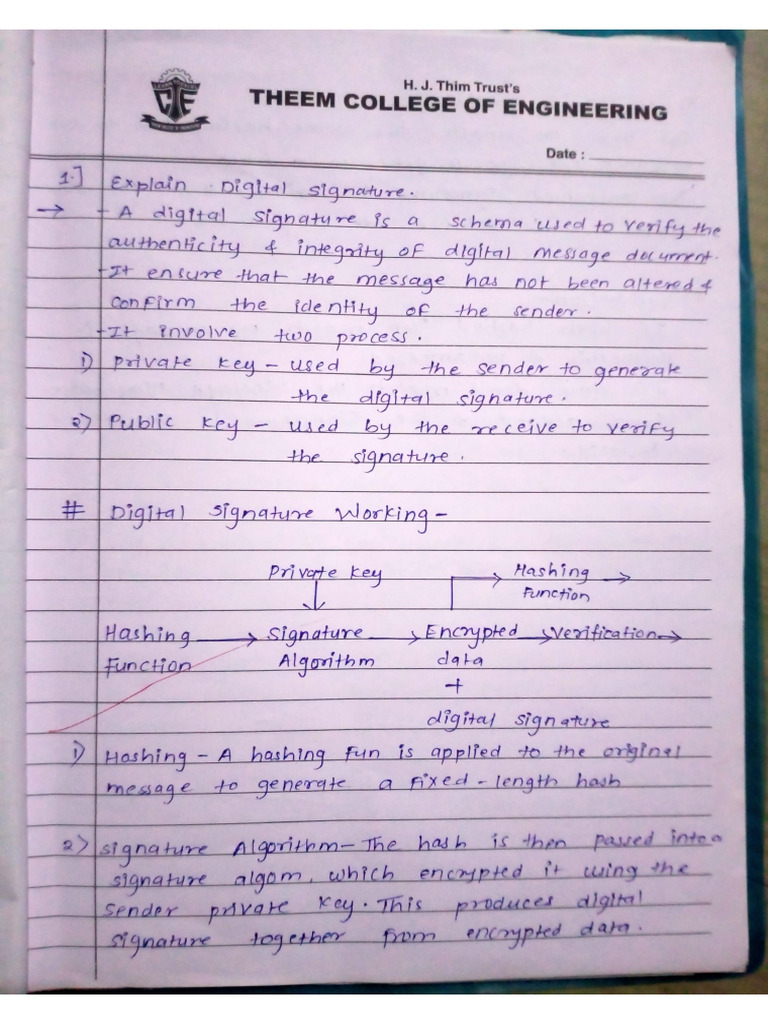 H. J. Thim Trust's
THEEM COLLEGE OF ENGINEERING
Date :
1.] Explain Digital signature.
→ - A digital signature is a schema used to verify the
authenticity & integrity of digital message document.
- It ensure that the message has not been altered &
confirm the identity of the sender.
- It involve two process.
1) Private key - used by the sender to generate
the digital signature.
2) Public key - used by the receive to verify
the signature.
# Digital signature Working -
Private key
Hashing
Function
Hashing → Signature → Encrypted → Verification →
Function Algorithm data
+
digital signature
1) Hashing - A hashing fun is applied to the original
message to generate a fixed - length hash
2) signature Algorithm - The hash is then passed into a
signature algom, which encrypted it using the
sender private key. This produces digital
signature together from encrypted data.